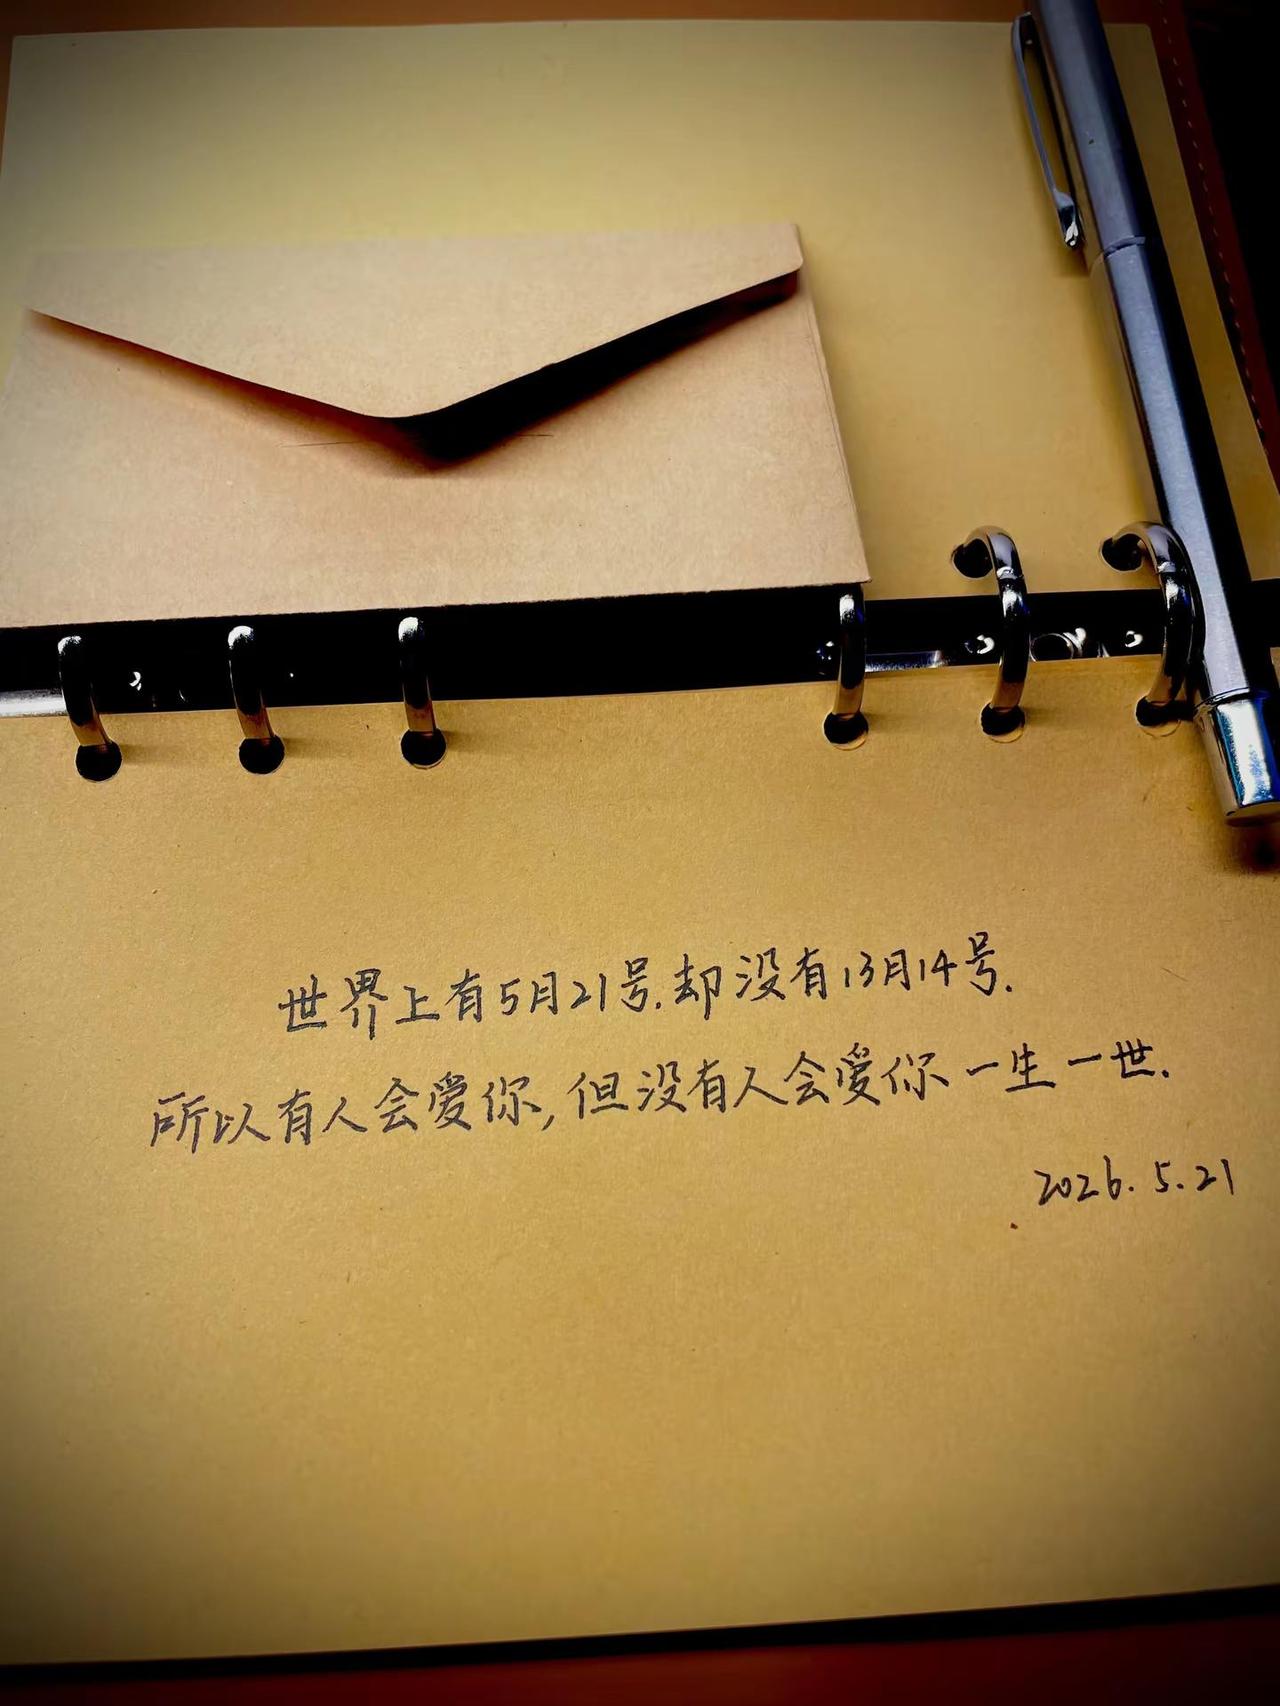 世界上有5月21号.却没有13月14号.
所以有人会爱你,但没有人会爱你一生一世.
2026.5.21